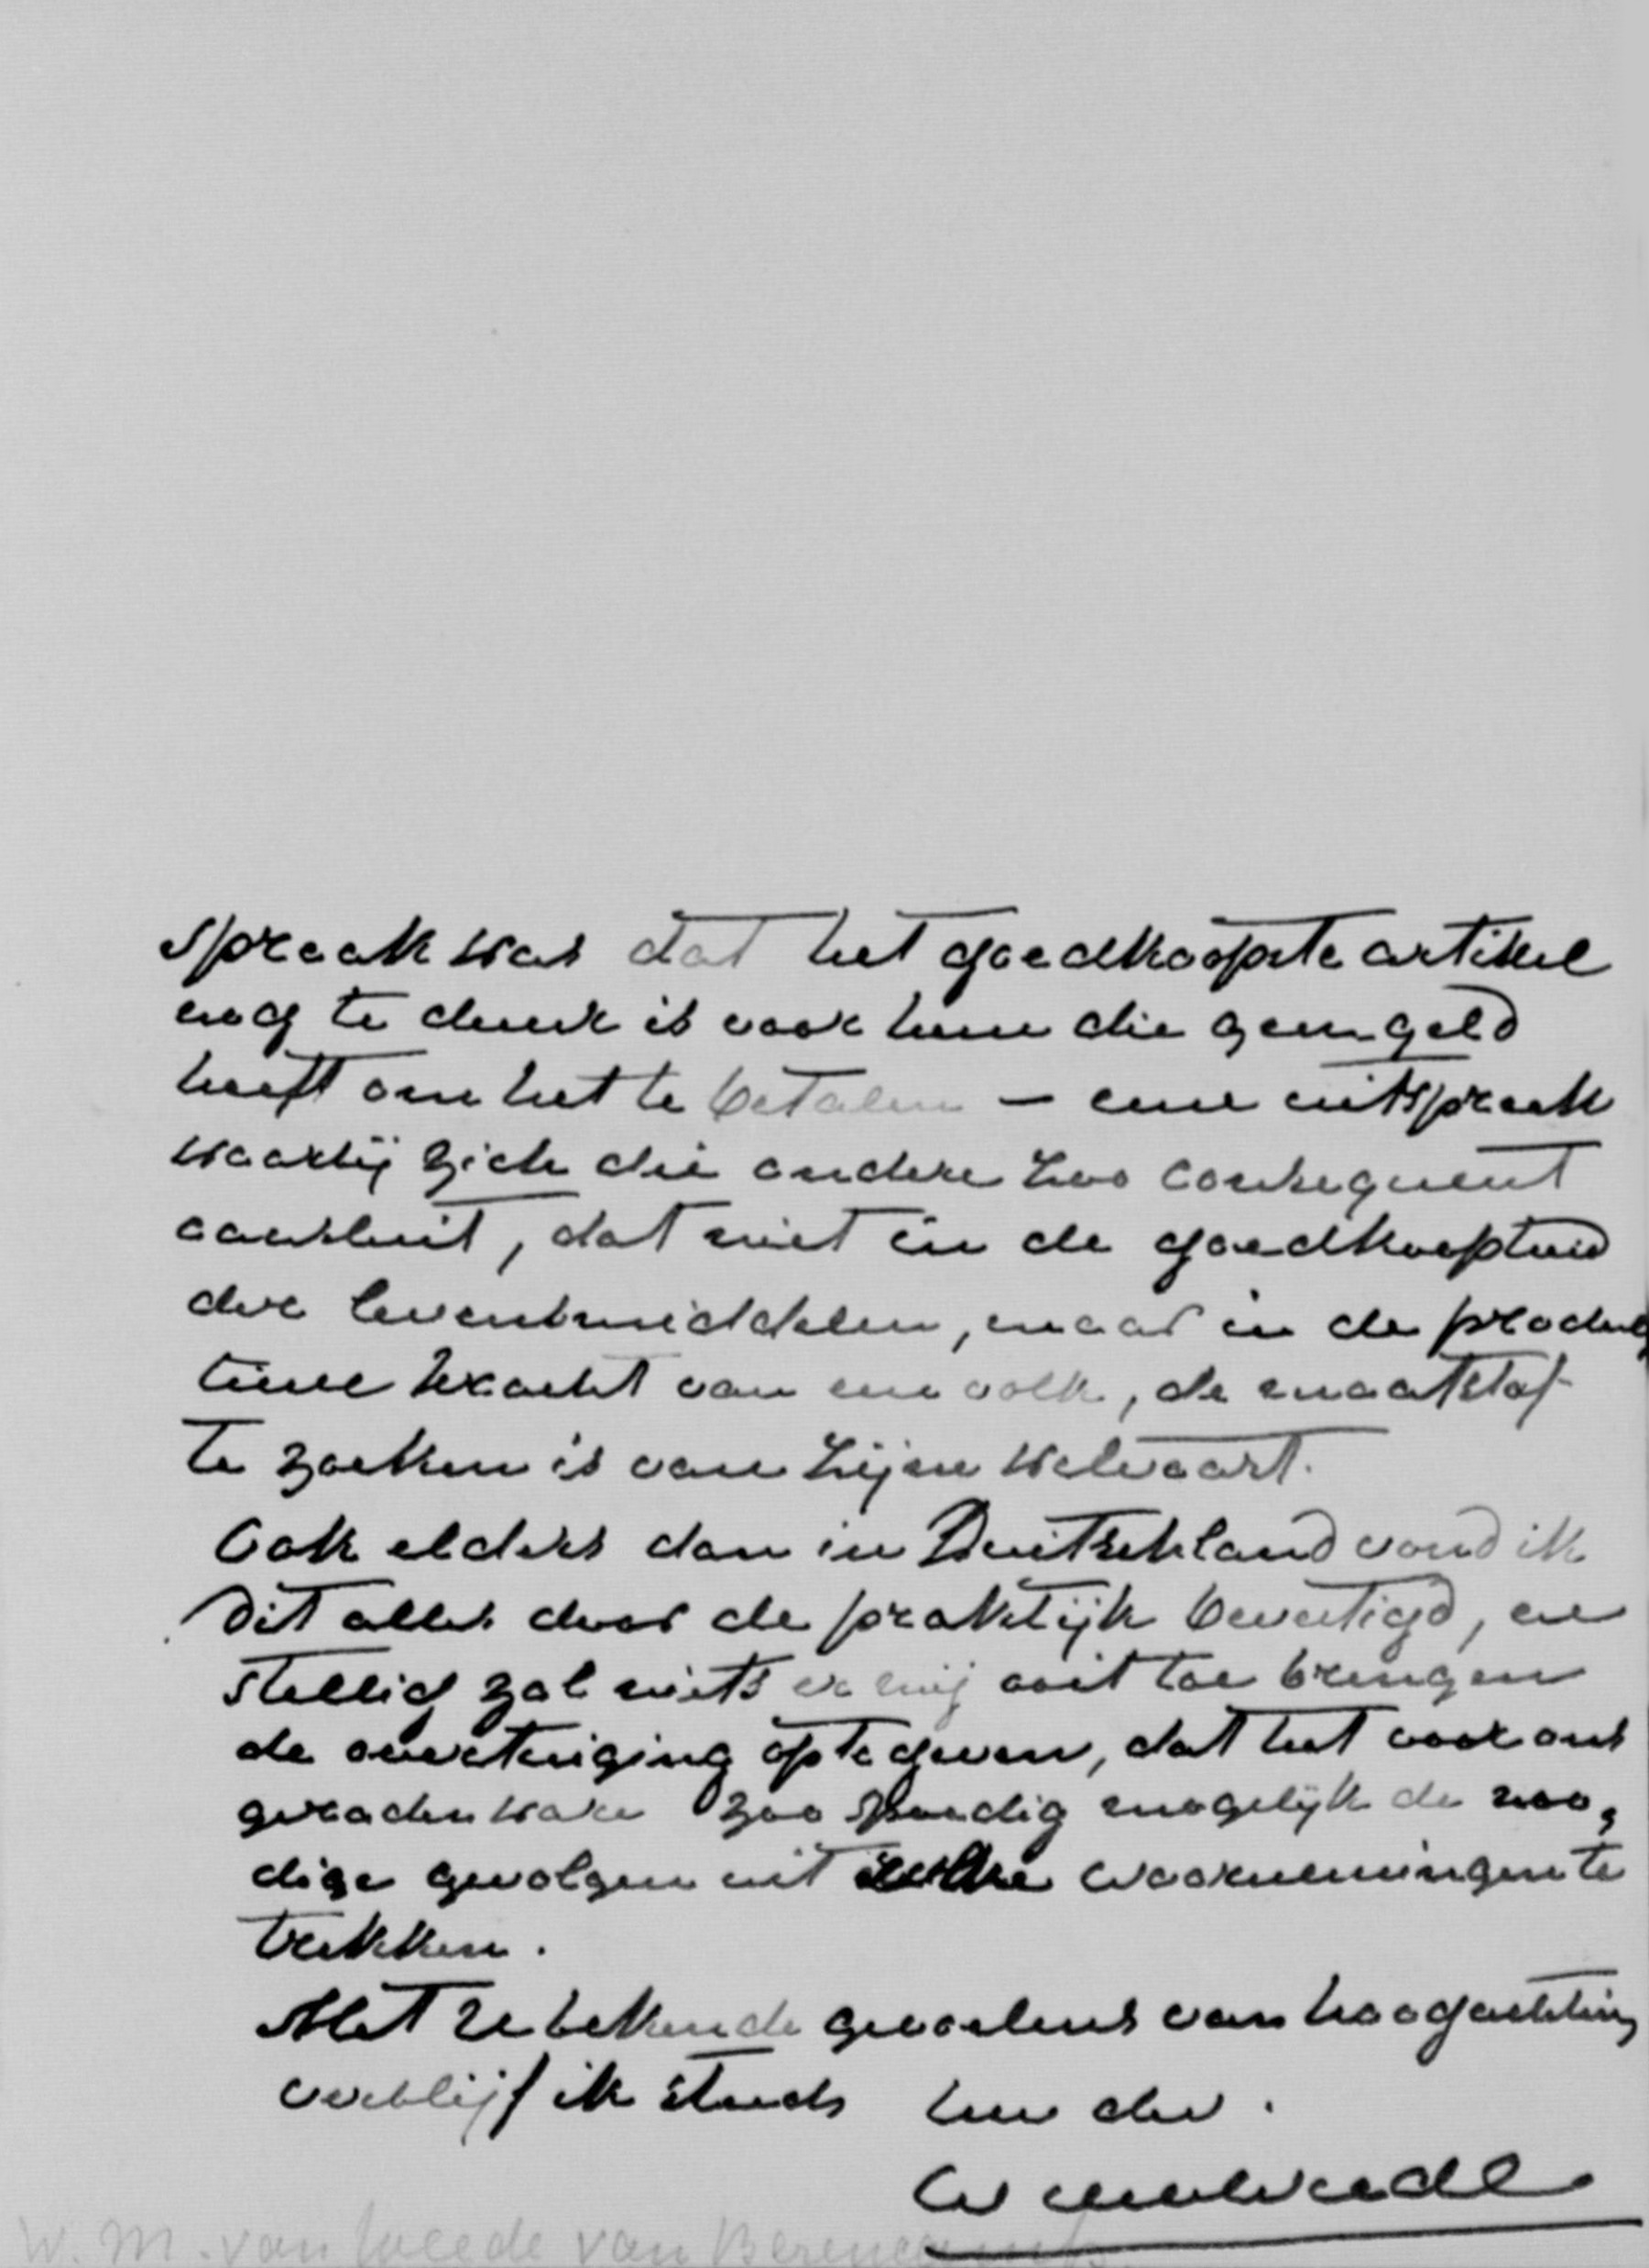 spraak was dat het goedkoopste artikel
nog te duur is voor hem die geen geld
heeft om het te betalen – eene uitspraak
waarbij zich die andere zoo consequent
aansluit, dat niet in de goedkoopheid
der levensmiddelen, maar in de produc
tieve kracht van een volk, de maatstaf
te zoeken is van zijne welvaart.
Ook elders dan in Duitschland vond ik
dit alles door de praktijk bevestigd, en
stellig zal niets er mij ooit toe brengen
de overtuiging opte geven, dat het voor ons
geraden ware zoo spoedig mogelijk de noo,
dige gevolgen uit zulke waarnemingen te
trekken.
Met U bekende gevoelens van hoogachting
verblijf ik steeds Uw dw.
W v Weede
W. M. van Weede van Berencamp